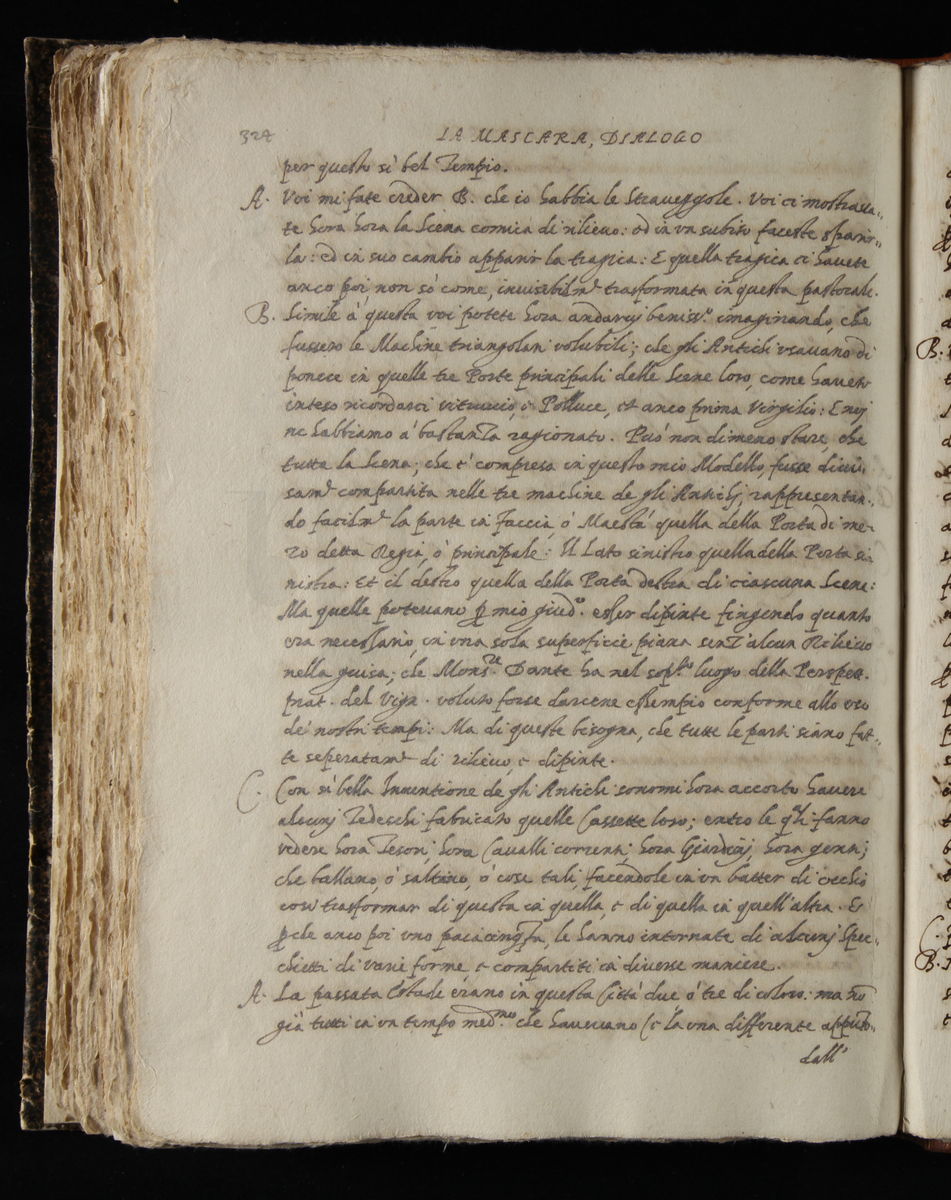 324
LA MASCARA, DIALOGO
per questo sì bel Tempio.
A. Voi mi fate creder B. che io habbia le Straveggole. Voi ci mostrava-
te hora hora la Scena comica di rilievo: ed in un subito faceste sparir-
la: ed in suo cambio apparir la tragica: E quella tragica ci havete
anco poi non sò come, invisibilmte trasformata in questa pastorale.
B. Simile à questa voi potete hora andarvi benissº imaginando, che
fussero le Machine triangolari volubili; che gli Antichi usavano di
ponere in quelle tre Porte principali delle Scene loro, come havete
inteso ricordarci vitruvio, e Polluce, et anco prima Virgilio: E noj
ne habbiamo à bastanza ragionato. Può non dimeno stare, che
tutta la Scena; che è compresa in questo mio Modello, fusse divi-
samte compartita nelle tre machine de gli Antichj rappresentan-
do facilmte la parte in faccia, ò Maestà quella della Porta di me-
zo detta Regia, ò principale: Il Lato sinistro quella della Porta si-
nistra: Et il destro quella della Porta destra di ciascuna Scena:
Ma quelle potevano p mio giudº. esser dipinte fingendo quanto
era necessario, in una sola superficie piana senz'alcun Rilievo
nella guisa; che Monsre Dante ha nel sopto luogo della Perspett.
prat. del Vign. voluto forse darcene essempio conforme allo uso
de' nostri tempi: Ma di queste bisogna, che tutte le parti siano fat-
te seperatamte di rilievo, e dipinte.
C. Con sì bella Inventione de gli Antichi sonomi hora accorto havere
alcunj Tedeschi fabricato quelle Cassette loro; entro le qli fanno
vedere hora Tesori, hora Cavalli correnti, hora Giardinj, hora genti;
che ballano, ò saltano, ò cose tali, facendole in un batter di occhio
così trasformar di questa in quella, e di quella in quell'altra. Et
pche anco poi uno paia le hanno intornate di alcunj Spec-
chietti di varie forme, e compartiti in diverse maniere.
A. La passata Estade erano in questa Città due ò tre di coloro: ma nō
già tutti in un tempo medmo che havevano (e la una differente appūto
dall'